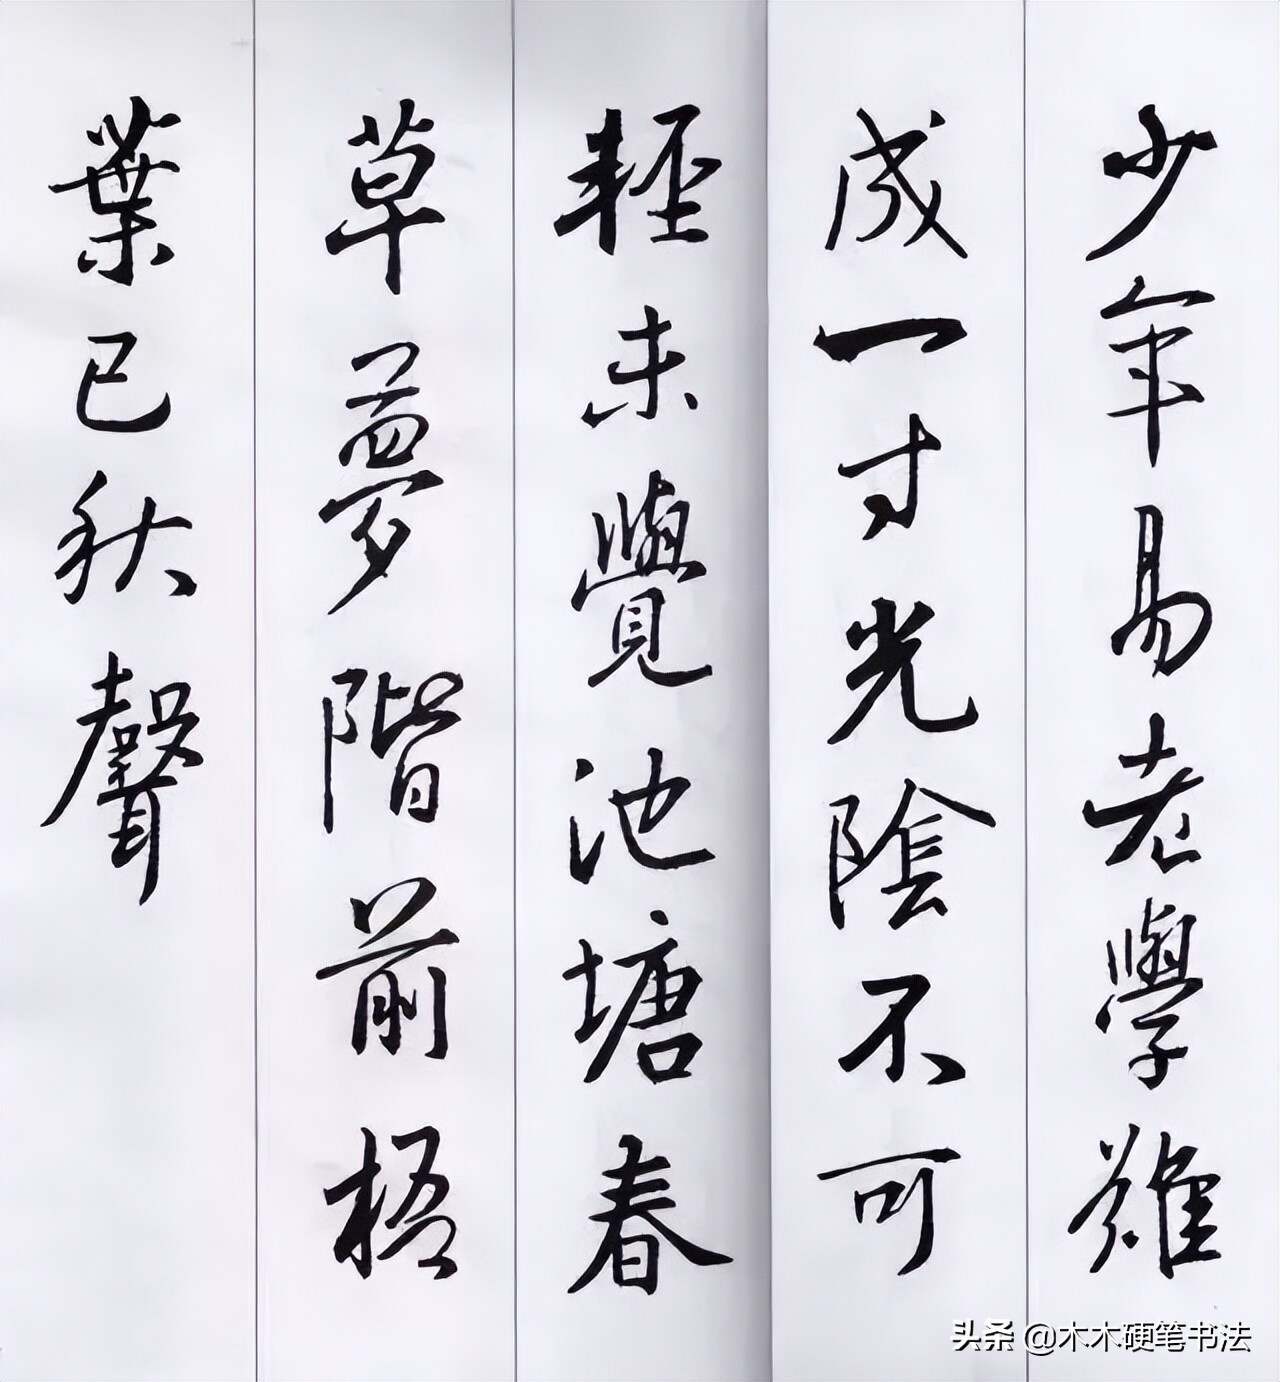 少年易老學難
成一寸光陰不可
輕未覺池塘春
草夢階前梧
葉已秋聲
头条 @木木硬笔书法